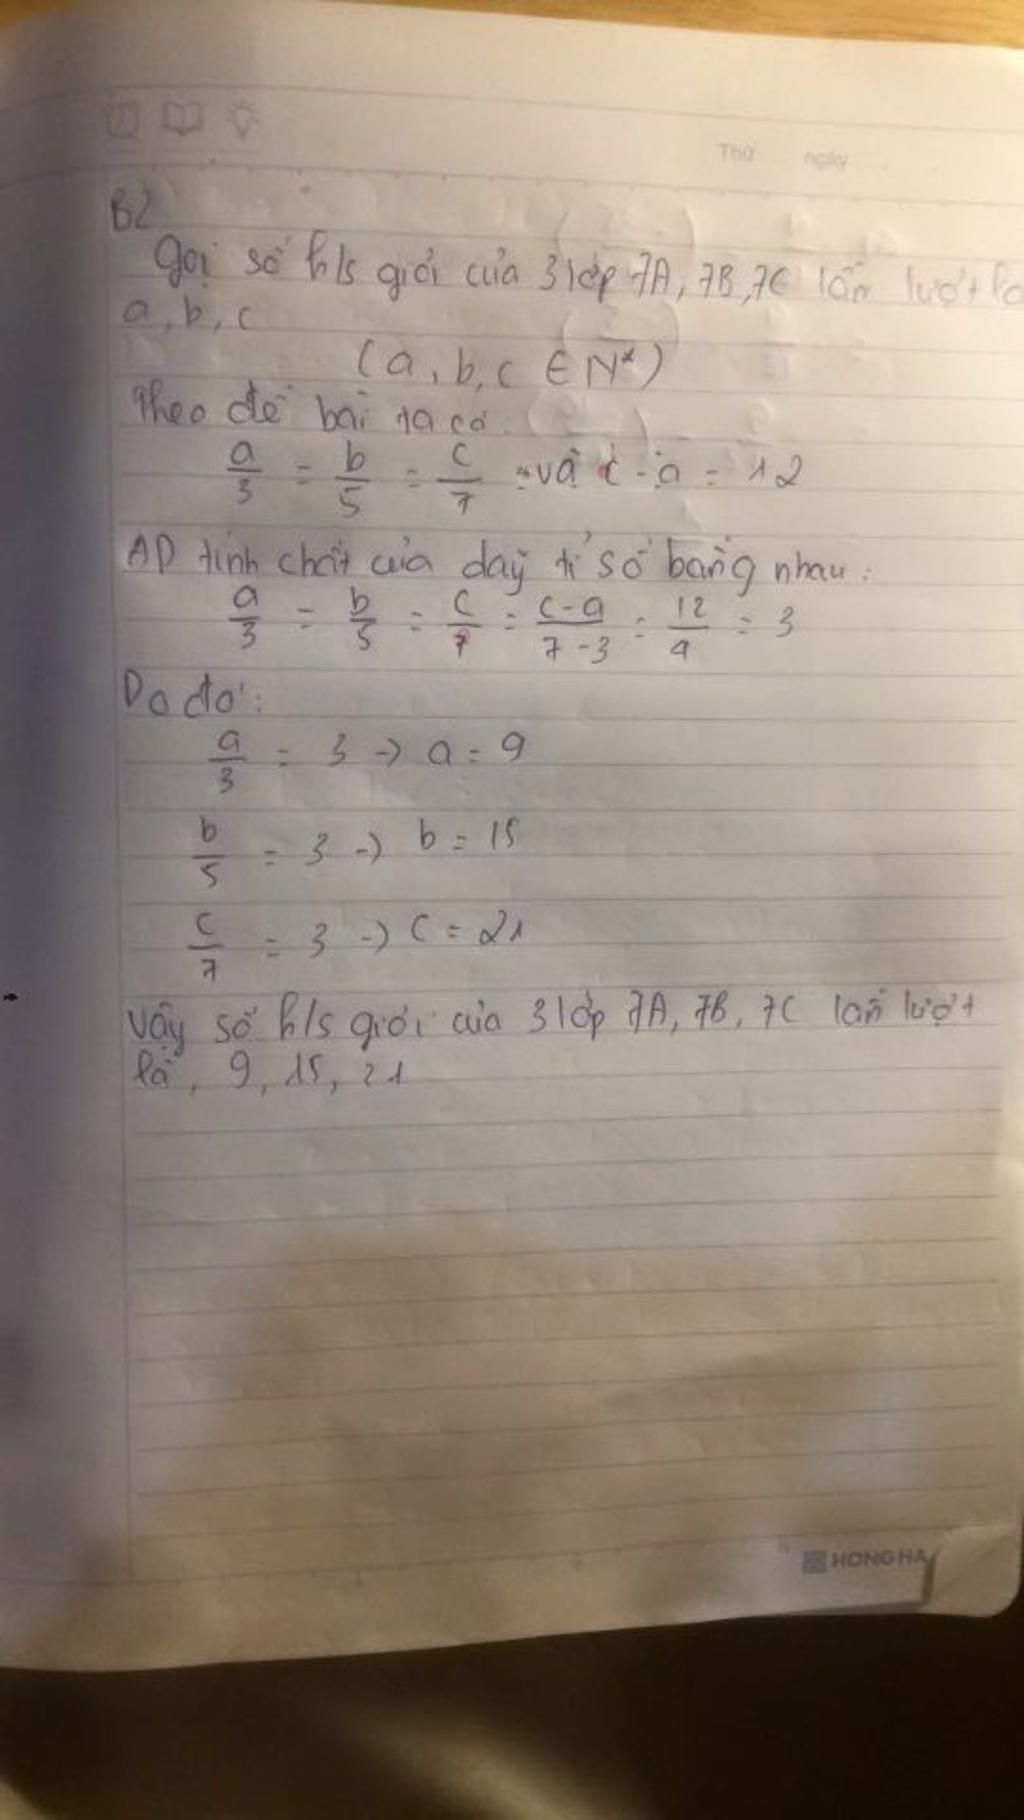 Thứ ngày
B2
Gọi số h/s giỏi của 3 lớp 7A, 7B, 7C lần lượt là
a, b, c
(a, b, c ∈ N*)
Theo đề bài ta có:
a/3 = b/5 = c/7 và c - a = 12
AD tính chất của dãy tỉ số bằng nhau:
a/3 = b/5 = c/7 = c-a/7-3 = 12/4 = 3
Do đó:
a/3 = 3 -> a = 9
b/5 = 3 -> b = 15
c/7 = 3 -> c = 21
Vậy số h/s giỏi của 3 lớp 7A, 7B, 7C lần lượt
là, 9, 15, 21
HONG HA